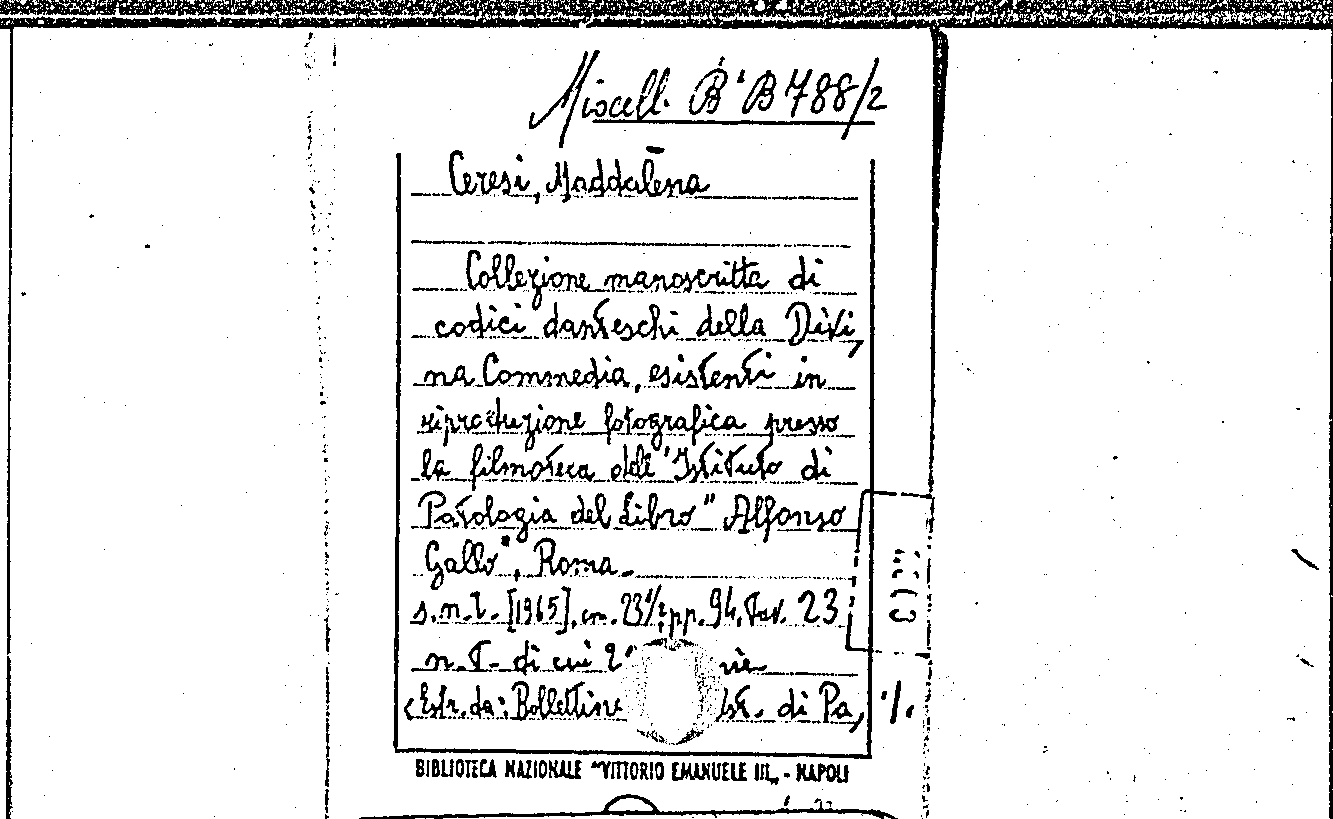 Miscell. B'B 788/2
Ceresi, Maddalena
Collezione manoscritta di
codici danteschi della Divi,
na Commedia, esistenti in
riproduzione fotografica presso
la filmoteca dell'Istituto di
Patologia del Libro "Alfonso
Gallo", Roma.
s.n.t. [1965], cm. 23½, pp. 94, tav. 23
n.t. di cui
<Estr. da: Bollettino di Pa, ·/.
BIBLIOTECA NAZIONALE "VITTORIO EMANUELE III„ - NAPOLI